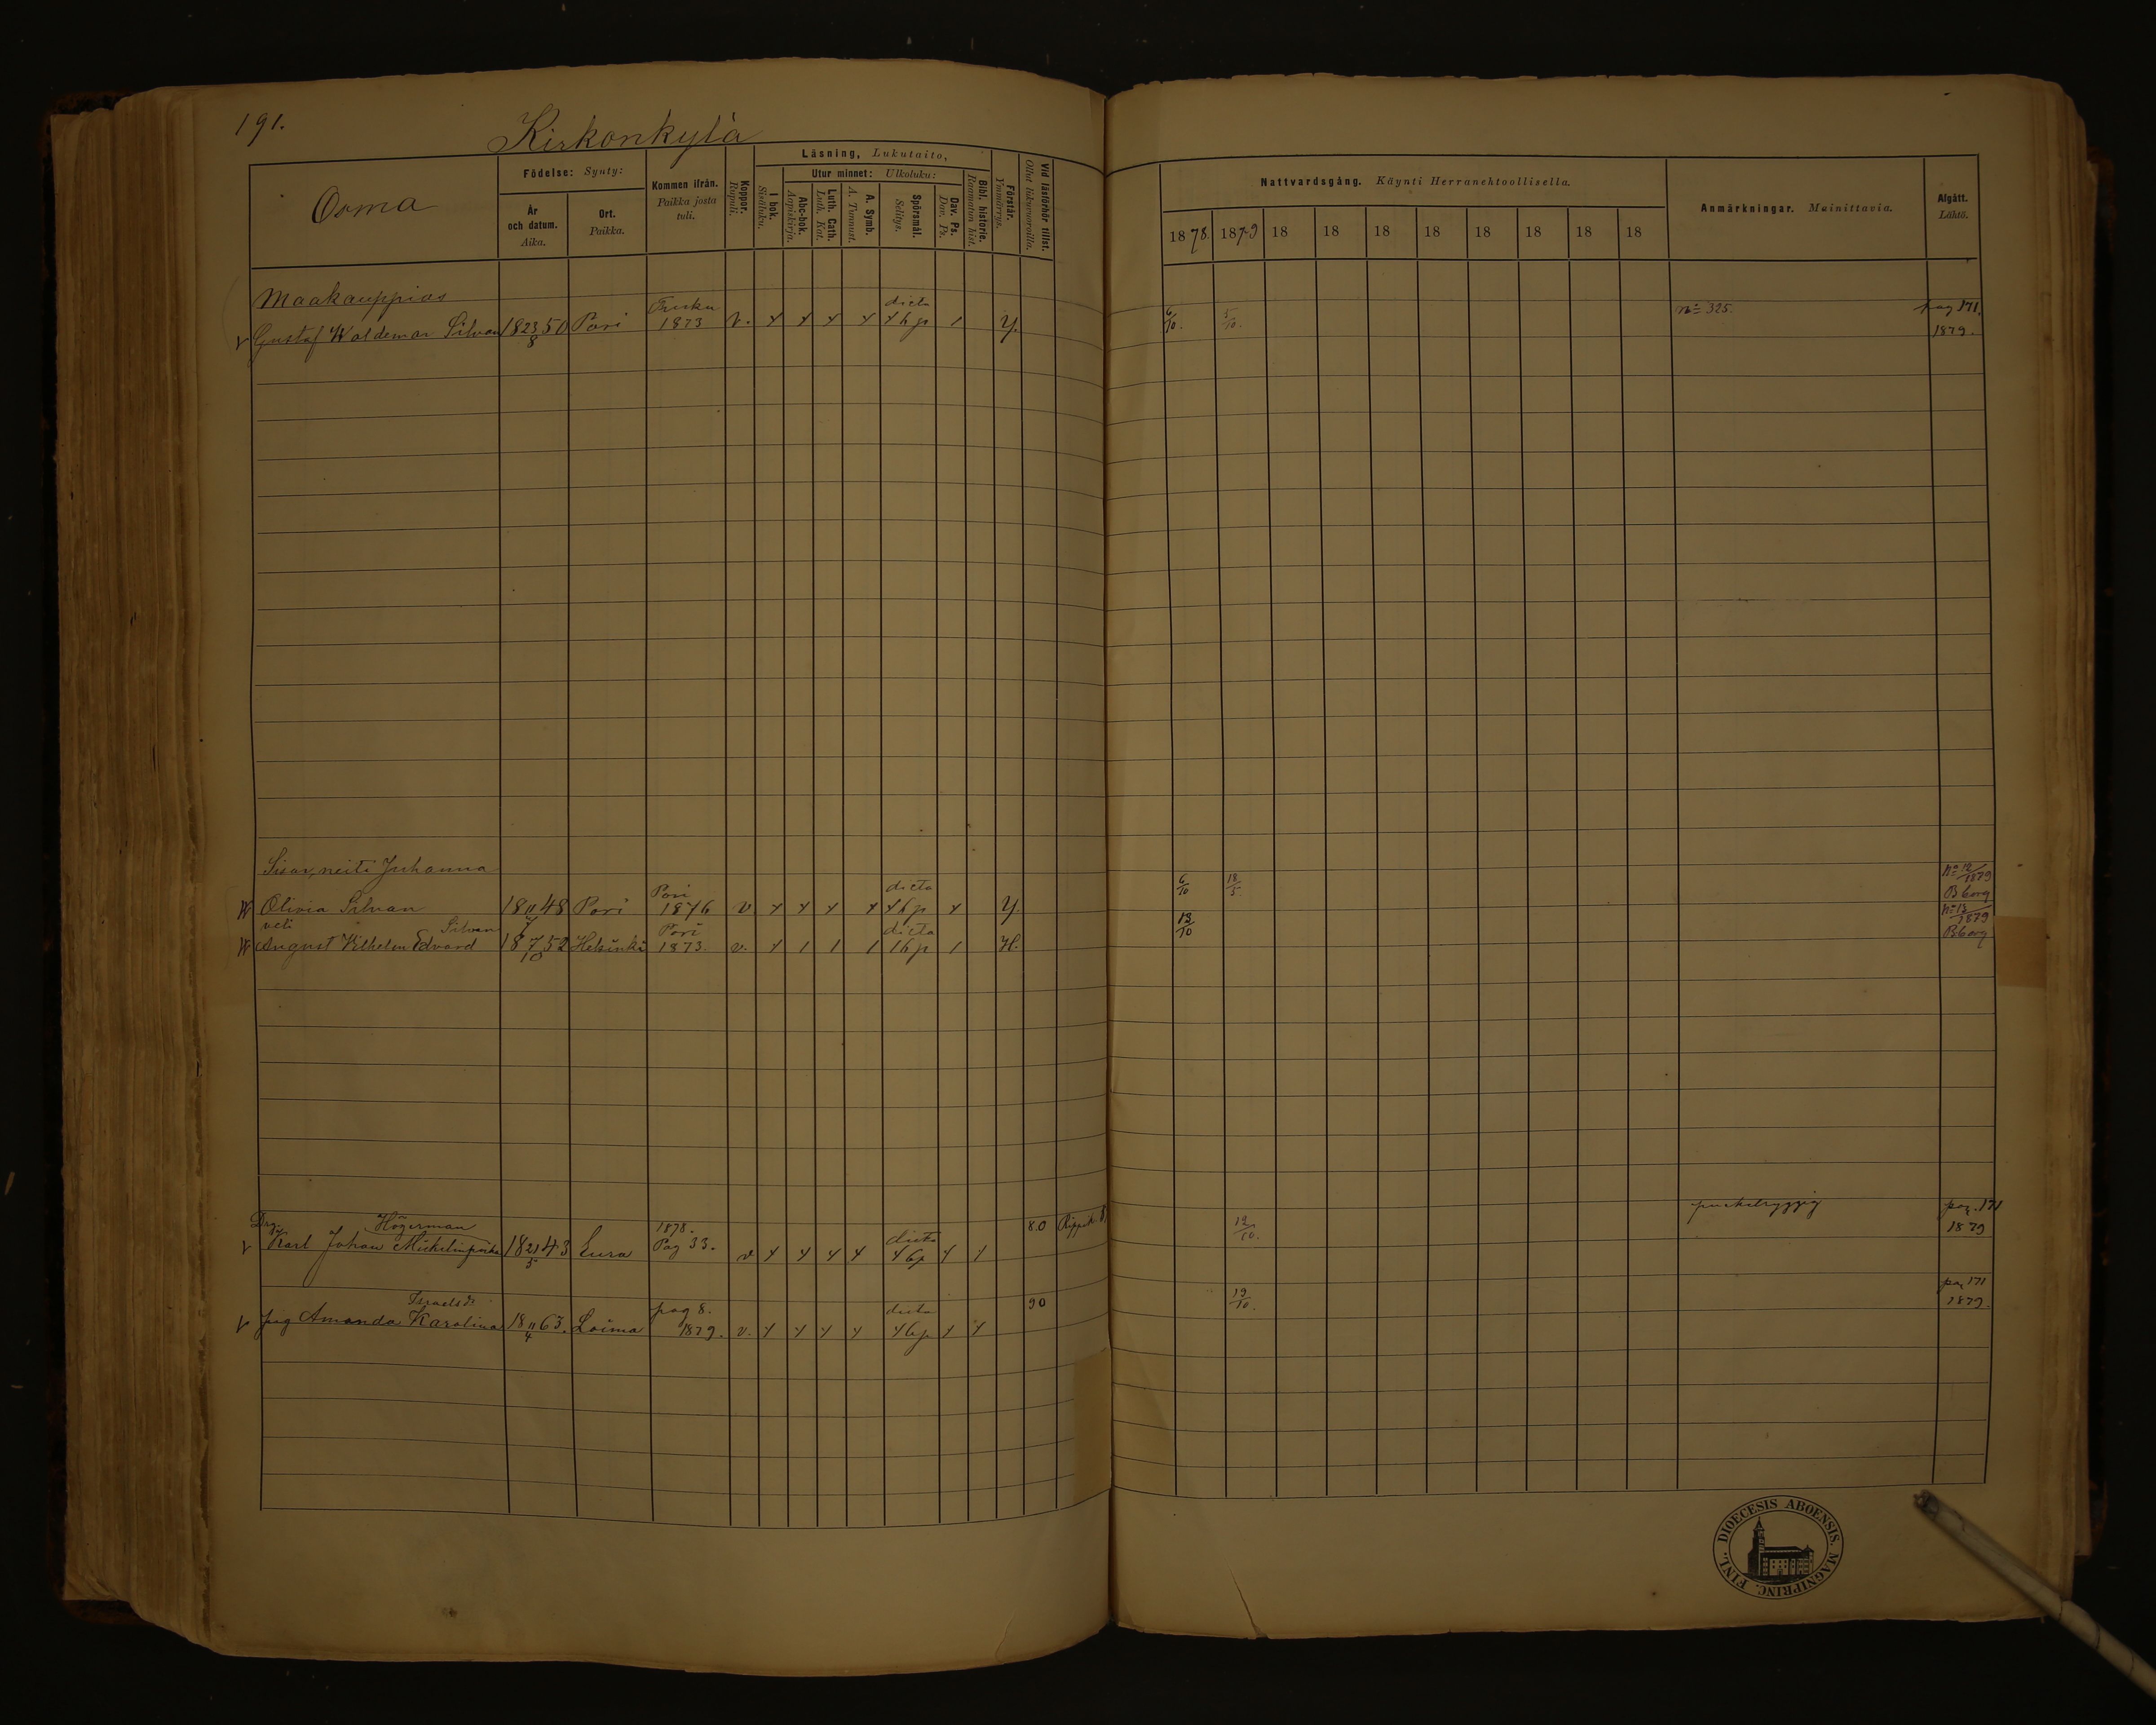 191.
Kirkonkylä
Osma
Födelse: Synty:
År och datum. Aika.
Ort. Paikka.
Kommen ifrån. Paikka josta tuli.
Koppor. Rupuli.
Läsning, Lukutaito,
I bok. Sisäluku.
Utur minnet: Ulkoluku:
Abc-bok. Aapiskirja.
Luth. Cath. Luth. Kat.
A. Symb. A. Tunnust.
Spörsmål. Selitys.
Dav. Ps. Dav. Ps.
Bibl. historie. Raamatun hist.
Förstår. Ymmärrys.
Vid läsförhör tillst. Ollut lukuvuoroilla.
Nattvardsgång. Käynti Herranehtoollisella.
1878. 1879 18 18 18 18 18 18 18 18
Anmärkningar. Mainittavia.
Afgått. Lähtö.
Maakauppias
Gustaf Waldemar Silvan 18 23/8 50 Pori Turku 1873 v. dicta hp Y. 6/10. 5/10. n:o 325. pag 171. 1879.
Sisar, neiti Juhanna
Olivia Silvan 18 11/7 48 Pori Pori 1876 v dicta hp Y. 6/10 18/5 N:o 12/1879 Bborg
veli Silvan
August Vilhelm Edvard 18 7/10 52 Helsinki Pori 1873. v. dicta hp H. 13/10 N:o 13/1879 Bborg
Drg. Högerman
Karl Johan 18 21/5 43 Eura 1878. Pag 33. v dicta 80 12/10. puckelryggig pag. 171 1879
Israelsd:r
pig Amanda Karolina 18 11/4 63. Loima pag 8. 1879. v. dicta 90 19/10. pag 171 1879.
FINL. DIOECESIS ABOENSIS. MAGNIPRINC.